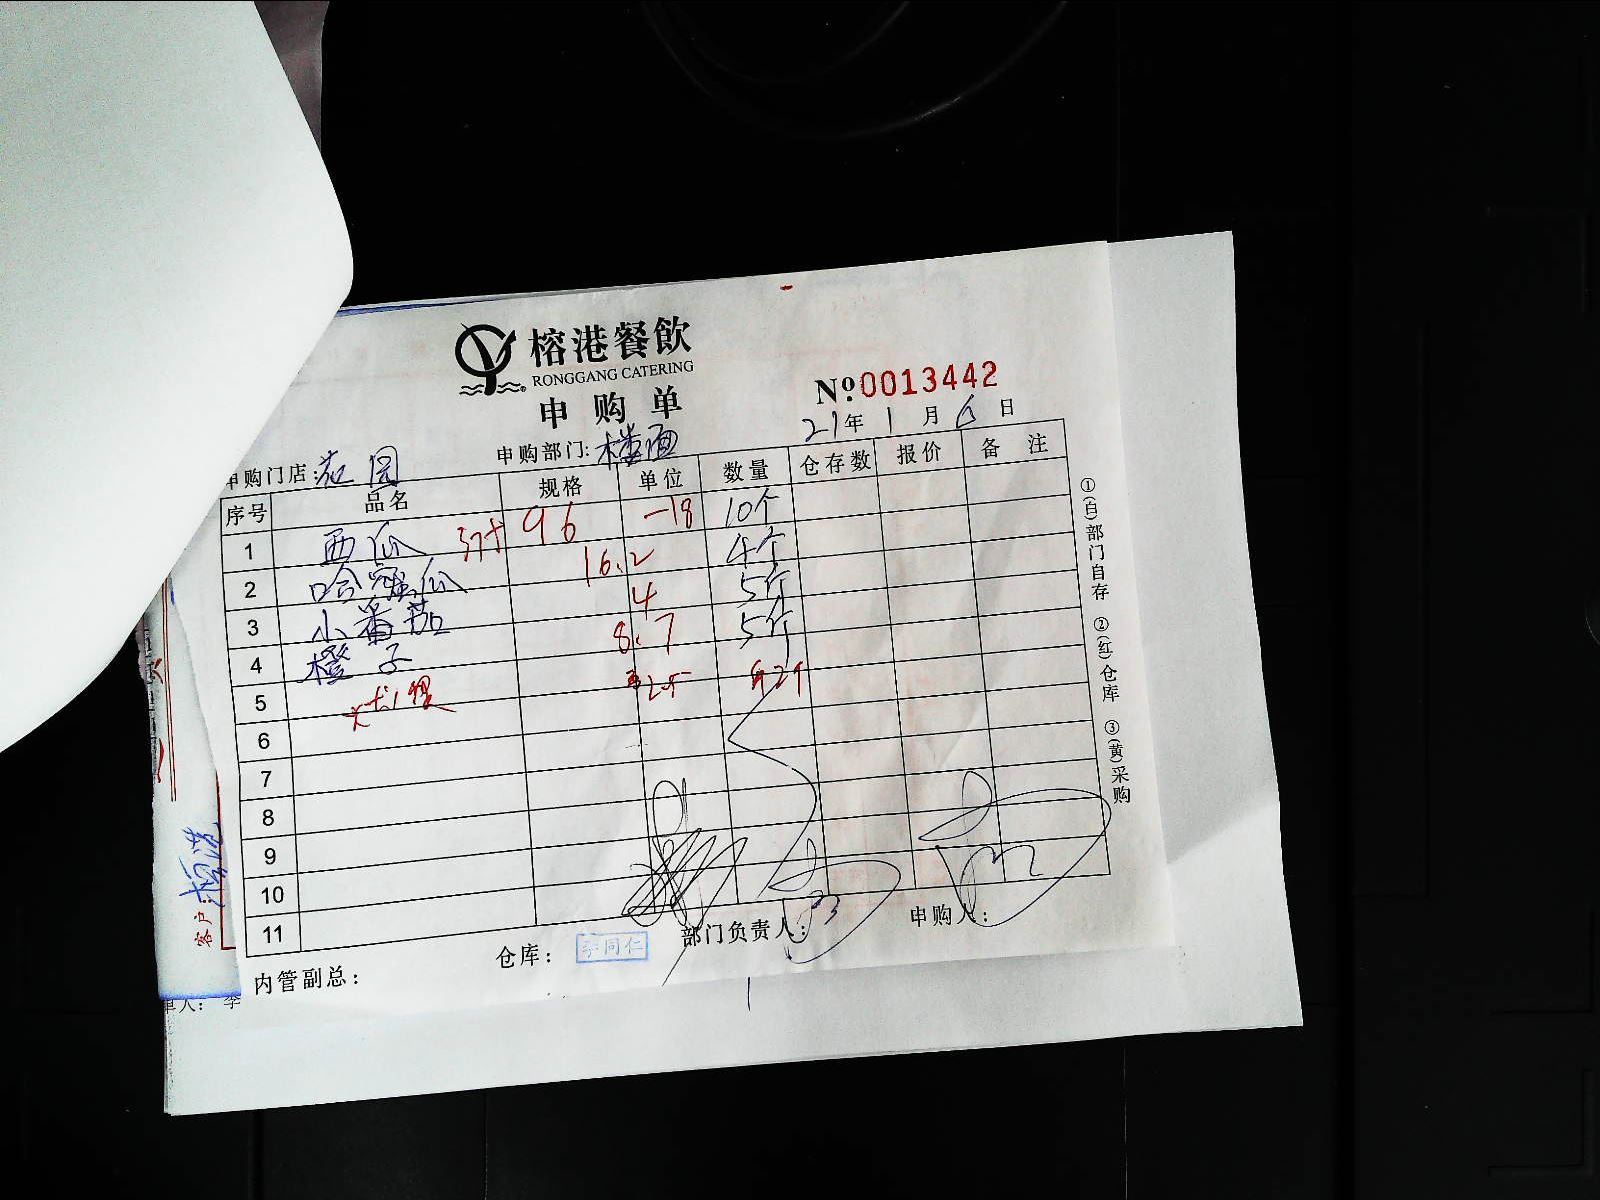 榕港餐飲
RONGGANG CATERING
申购单
№0013442
21年1月6日
申购门店:范园 申购部门:楼面
序号 品名 规格 单位 数量 仓存数 报价 备注
1 西瓜 96 -18 10个
2 哈密瓜 16.2 4个
3 小番茄 4 5斤
4 橙子 8.7 5斤
5
6
7
8
9
10
11
①(白)部门自存 ②(红)仓库 ③(黄)采购
内管副总: 仓库: 李同仁 部门负责人: 申购人:
客户:
单人: 李